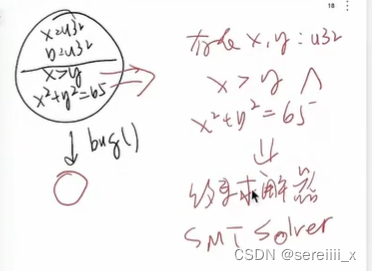 18
x=u32
b=u32
x>y
x²+y²=65
bug()
x,y:u32
x>y ∧
x²+y²=65
约束求解器
SMT Solver
CSDN @sereiiii_x